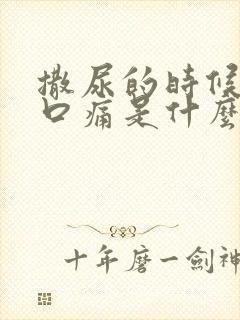 撒尿的時候
口痛是什麼
十年磨一劍神